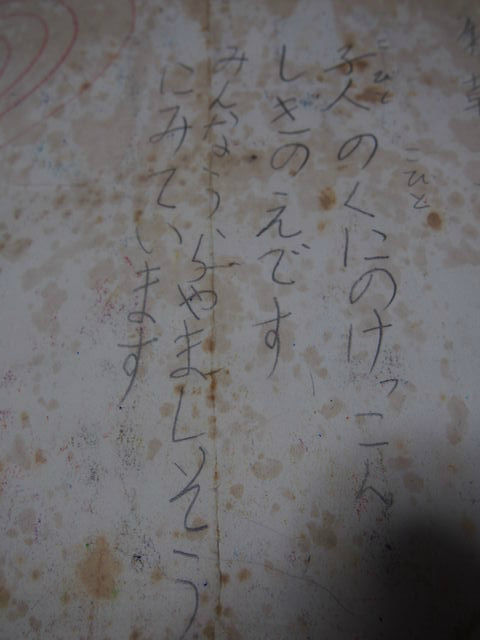 こひと
子人のくにのけっこん
こびと
しきのえです
みんなうらやましそう
にみています